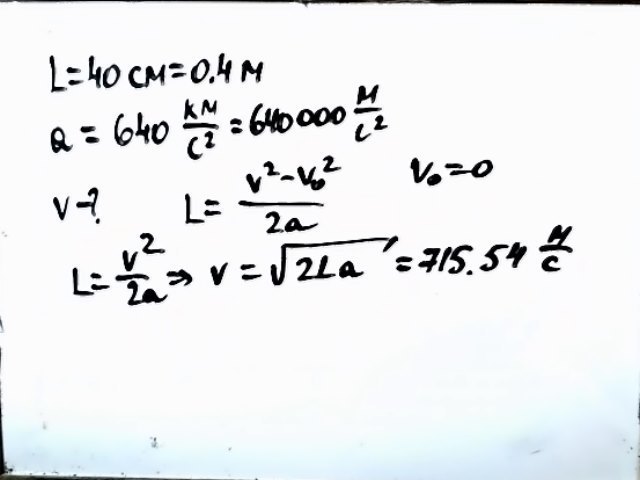 L=40 см=0.4 м
a = 640 км/с² = 640000 м/с²
v-? L= (v²-v₀²)/2a v₀=0
L= v²/2a ⇒ v = √2La = 715.54 м/с